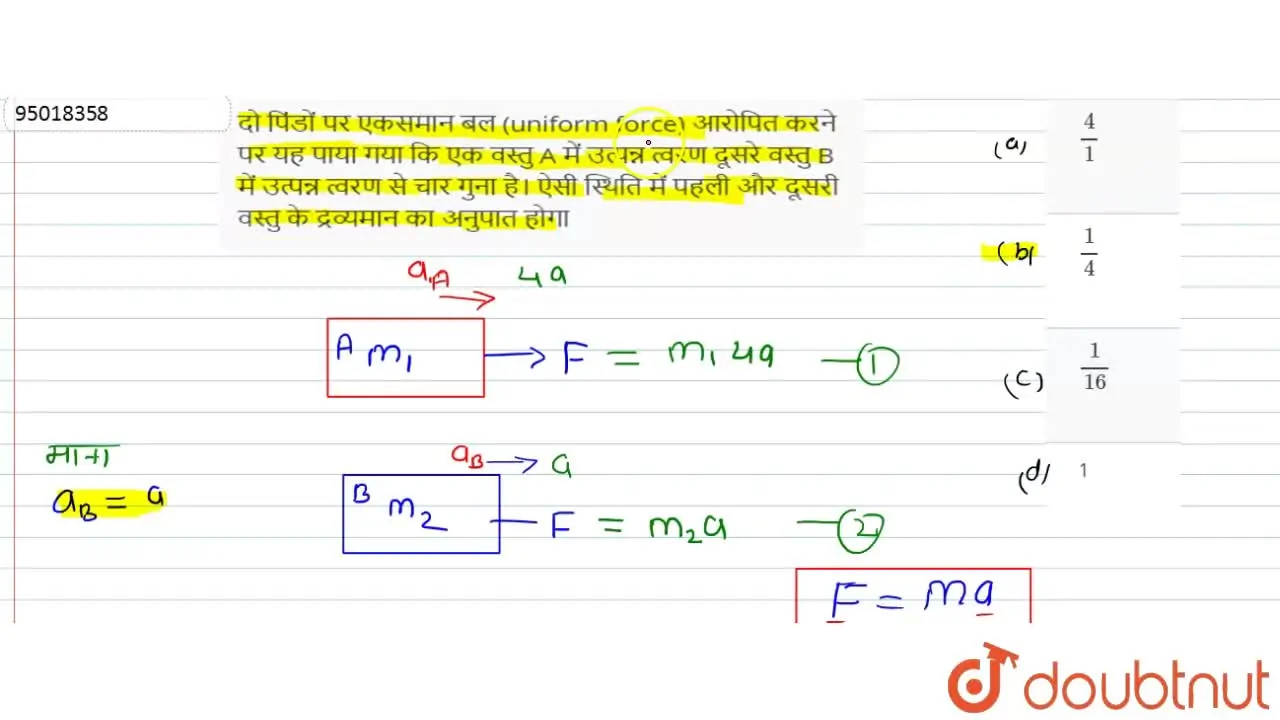 95018358
दो पिंडों पर एकसमान बल (uniform force) आरोपित करने
पर यह पाया गया कि एक वस्तु A में उत्पन्न त्वरण दूसरे वस्तु B
में उत्पन्न त्वरण से चार गुना है। ऐसी स्थिति में पहली और दूसरी
वस्तु के द्रव्यमान का अनुपात होगा
(a) 4/1
(b) 1/4
(c) 1/16
(d) 1
a_A → 4a
A m₁ → F = m₁4a — ①
माना
a_B = a
a_B → a
B m₂ — F = m₂a — ②
F = ma
doubtnut